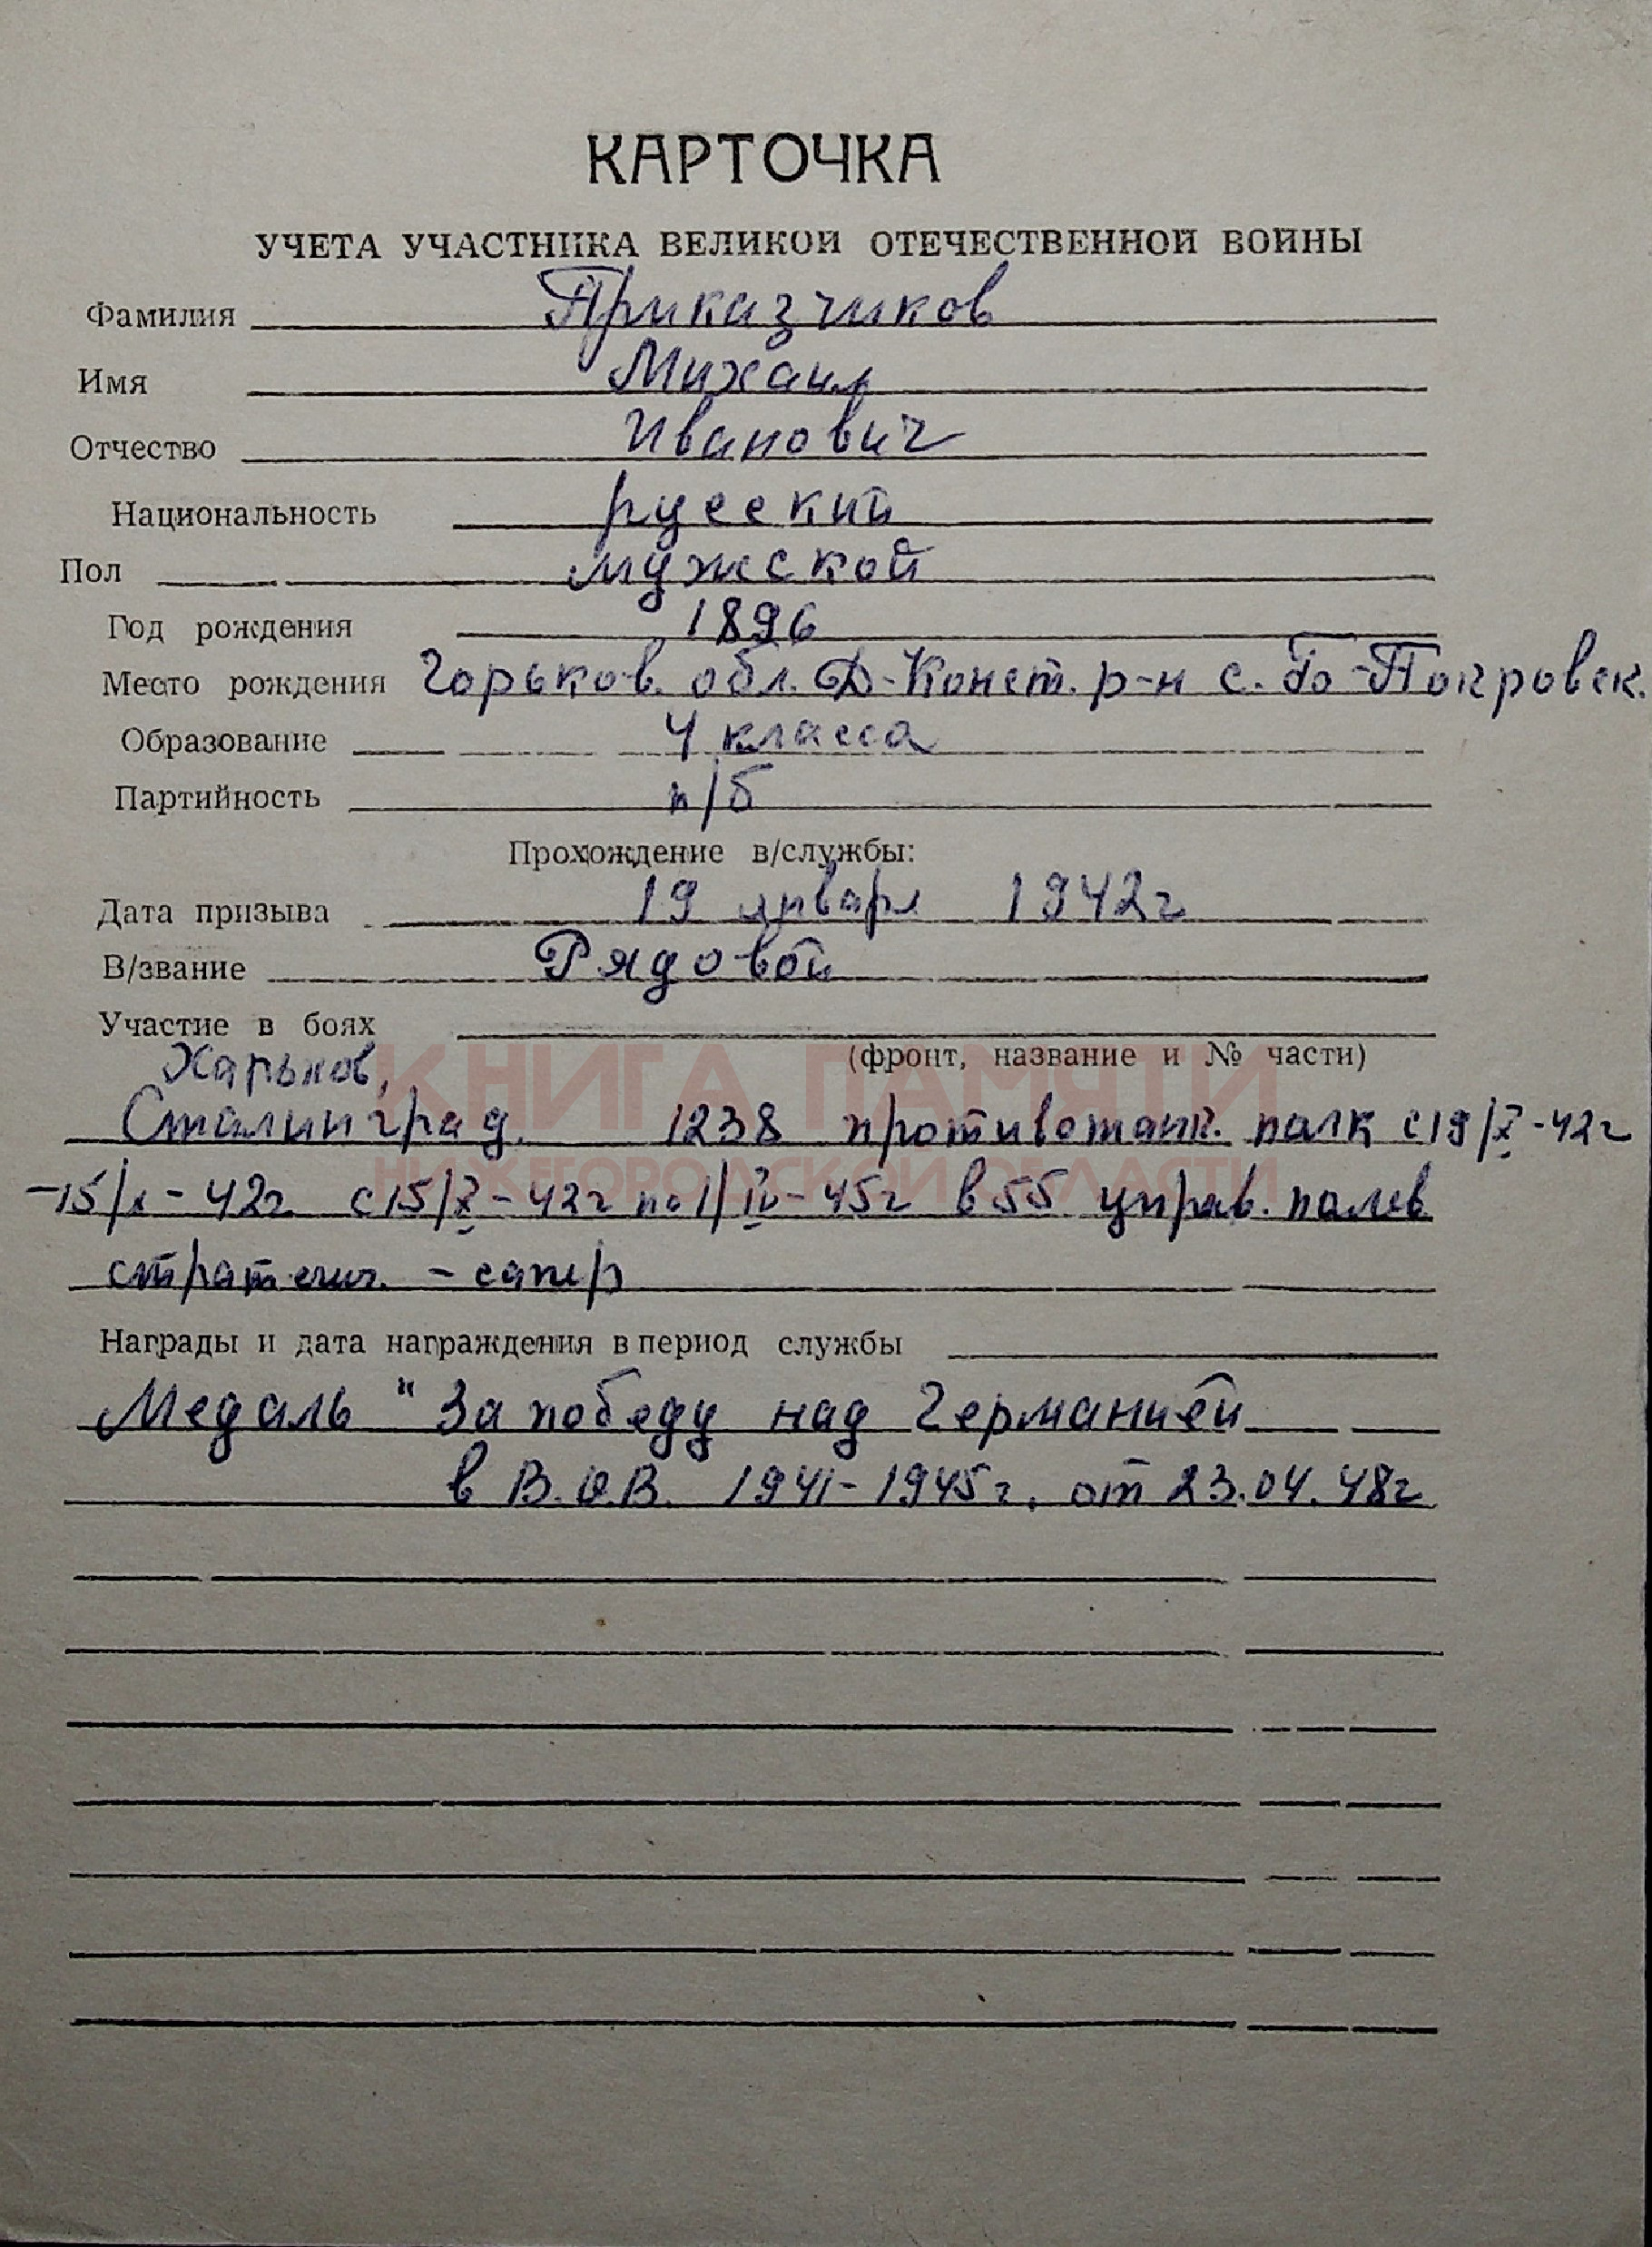 КАРТОЧКА
УЧЕТА УЧАСТНИКА ВЕЛИКОЙ ОТЕЧЕСТВЕННОЙ ВОЙНЫ
Фамилия Приказчиков
Имя Михаил
Отчество Иванович
Национальность русский
Пол мужской
Год рождения 1896
Место рождения Горьков. обл. Д-Конст. р-н с. Бо-Покровск.
Образование 4 класса
Партийность п/б
Прохождение в/службы:
Дата призыва 19 января 1942г
В/звание Рядовой
Участие в боях
(фронт, название и № части)
Харьков,
КНИГА ПАМЯТИ
Сталинград. 1238 противотанк. полк с 19/X-42г
НИЖЕГОРОДСКОЙ ОБЛАСТИ
-15/x-42г с 15/X-42г по 1/IV-45г в 55 управ. полев
стратегич. - сапер
Награды и дата награждения в период службы
Медаль "За победу над Германией
в В.О.В. 1941-1945г. от 23.04.48г